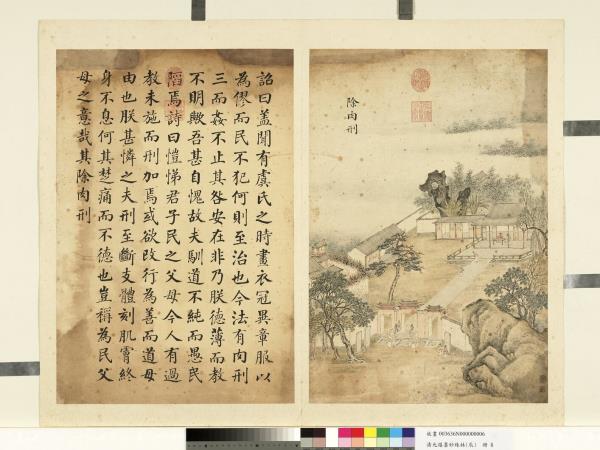 除肉刑
詔曰蓋聞有虞氏之時畫衣冠異章服以
為僇而民不犯何則至治也今法有肉刑
三而姦不止其咎安在非乃朕德薄而教
不明歟吾甚自愧故夫馴道不純而愚民
陷焉詩曰愷悌君子民之父母今人有過
教未施而刑加焉或欲改行為善而道毋
由也朕甚憐之夫刑至斷支體刻肌膚終
身不息何其楚痛而不德也豈稱為民父
母之意哉其除肉刑
故畫 003636N000000006